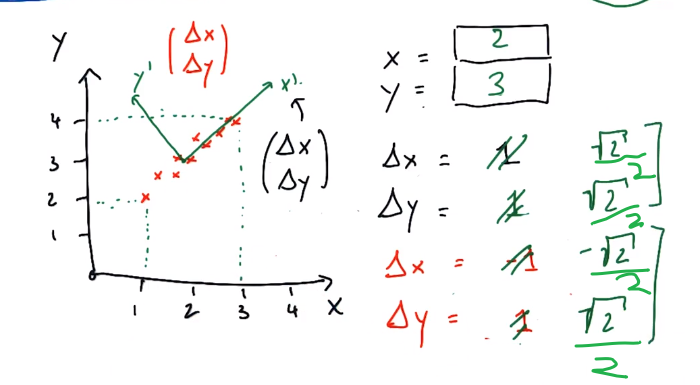 Y
(Δx
Δy)
y'
x'
(Δx
Δy)
4
3
2
1
1 2 3 4 X
x = 2
y = 3
Δx = 1 √2/2
Δy = 1 √2/2
Δx = -1 -√2/2
Δy = 1 √2/2